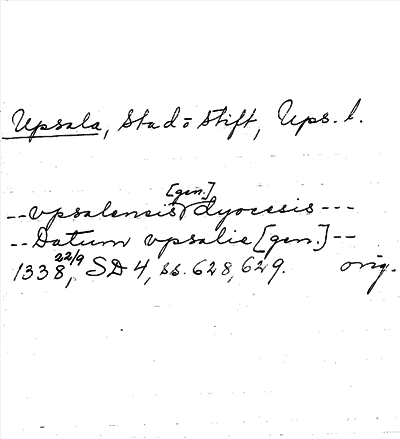 Upsala, Stad o Stift, Ups. l.
[gen.]
-- vpsalensis dyocesis ---
-- Datum vpsalie [gen.] --
1338 22/9, SD 4, ss. 628, 629. orig.